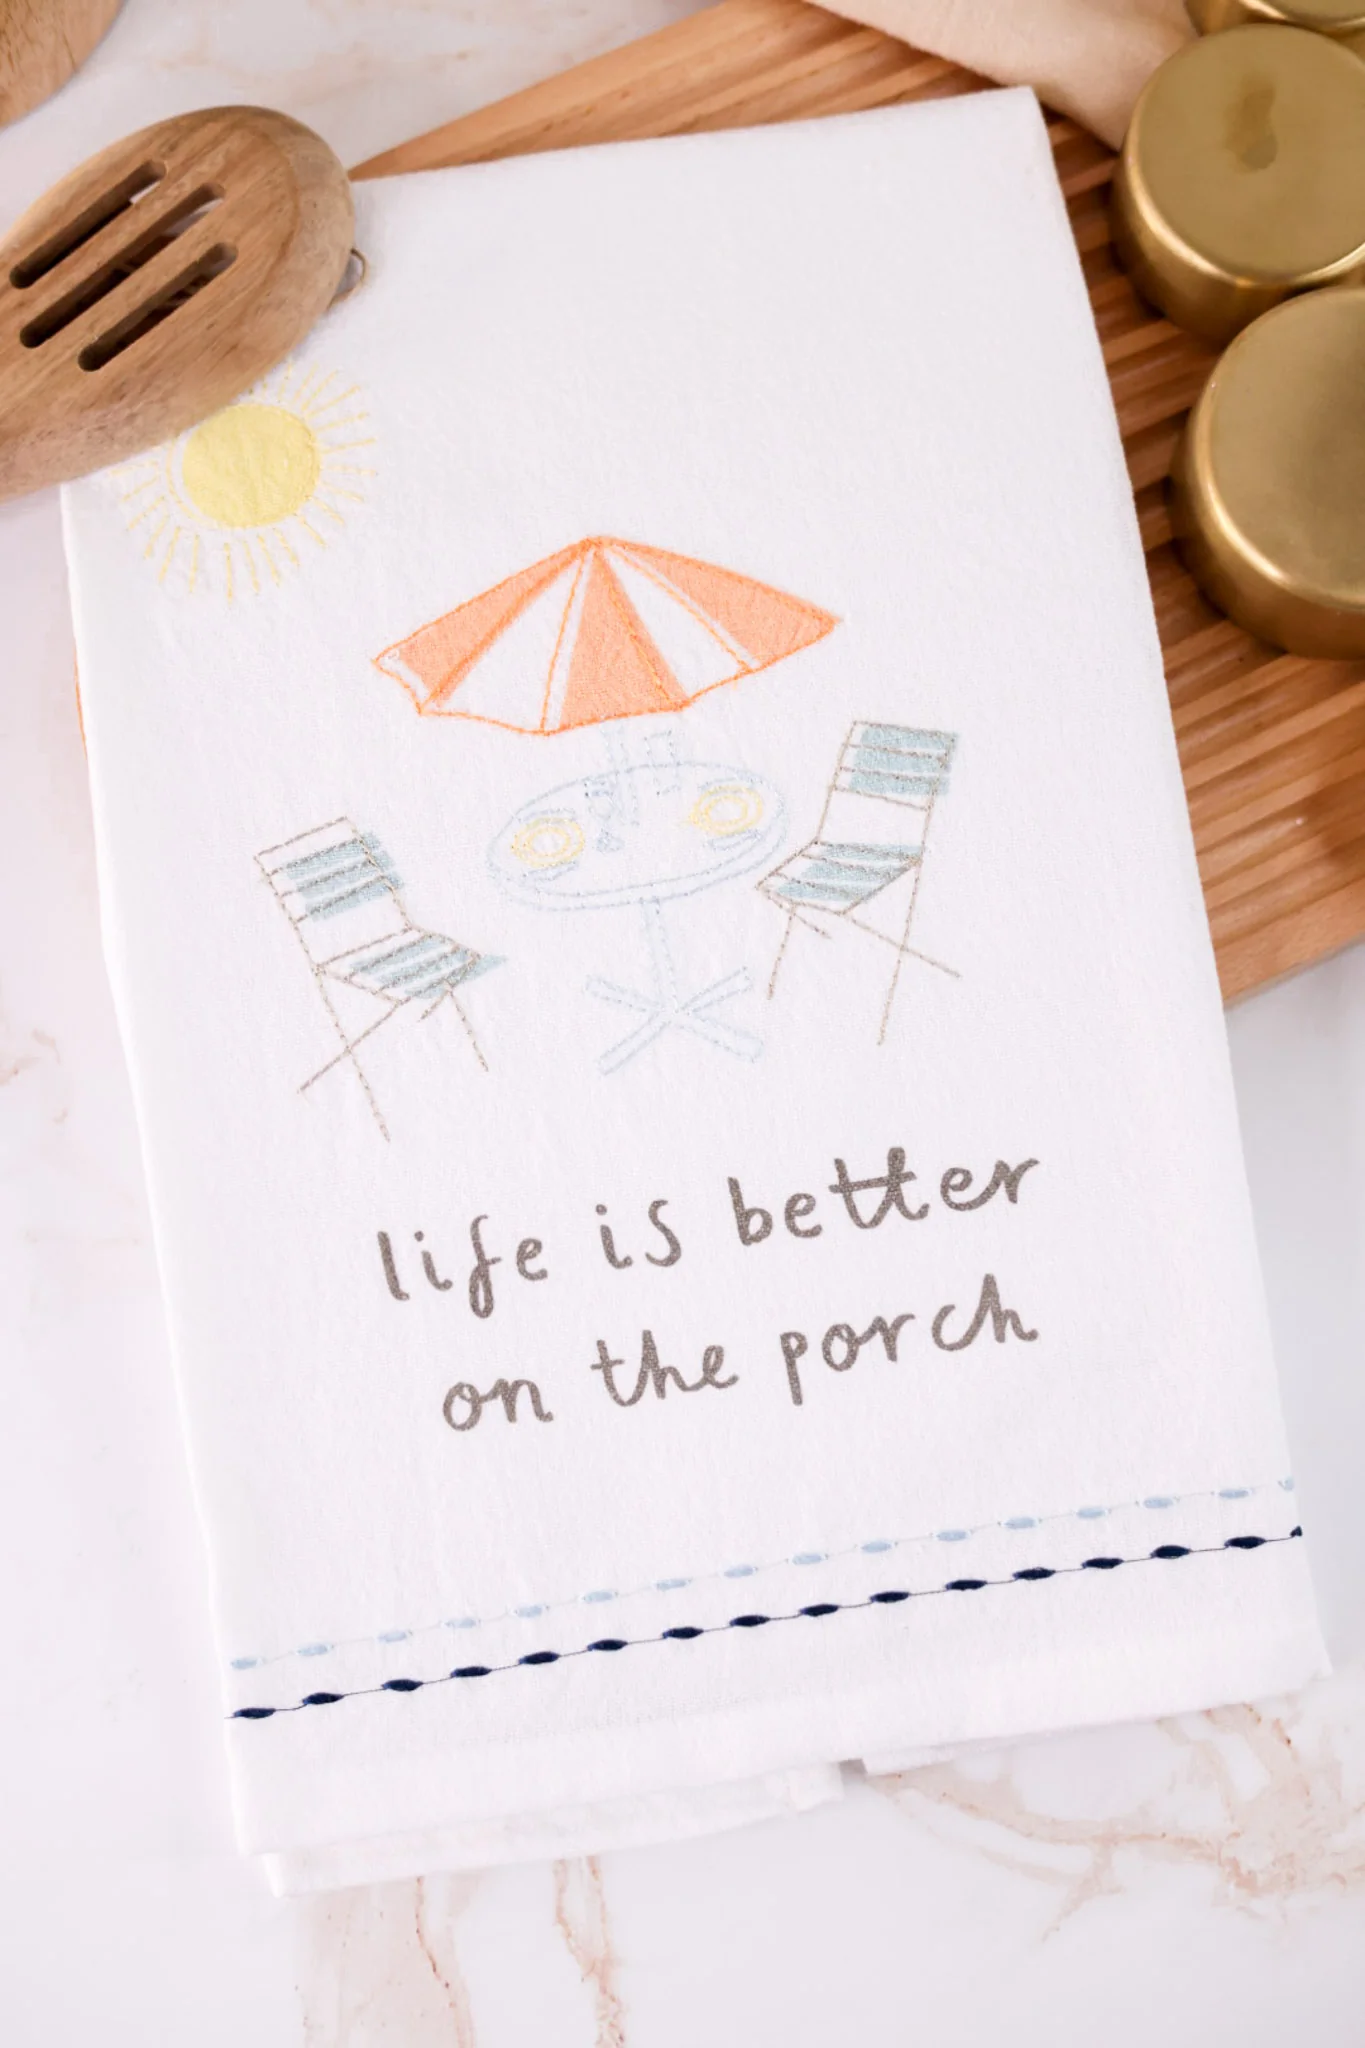 life is better
on the porch